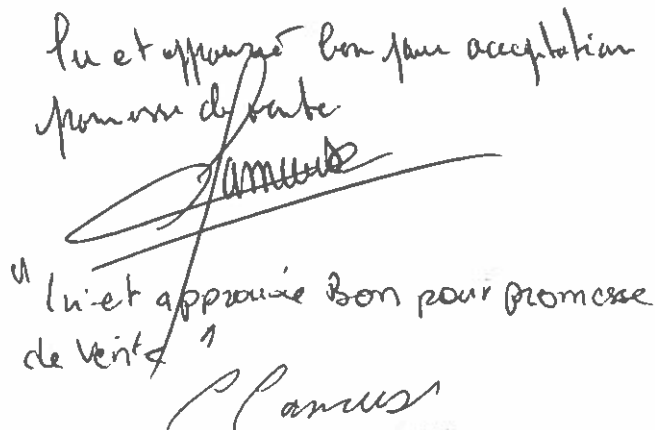 lu et approuvé bon pour acceptation
promesse de vente
"lu et approuvée Bon pour promesse
de vente"